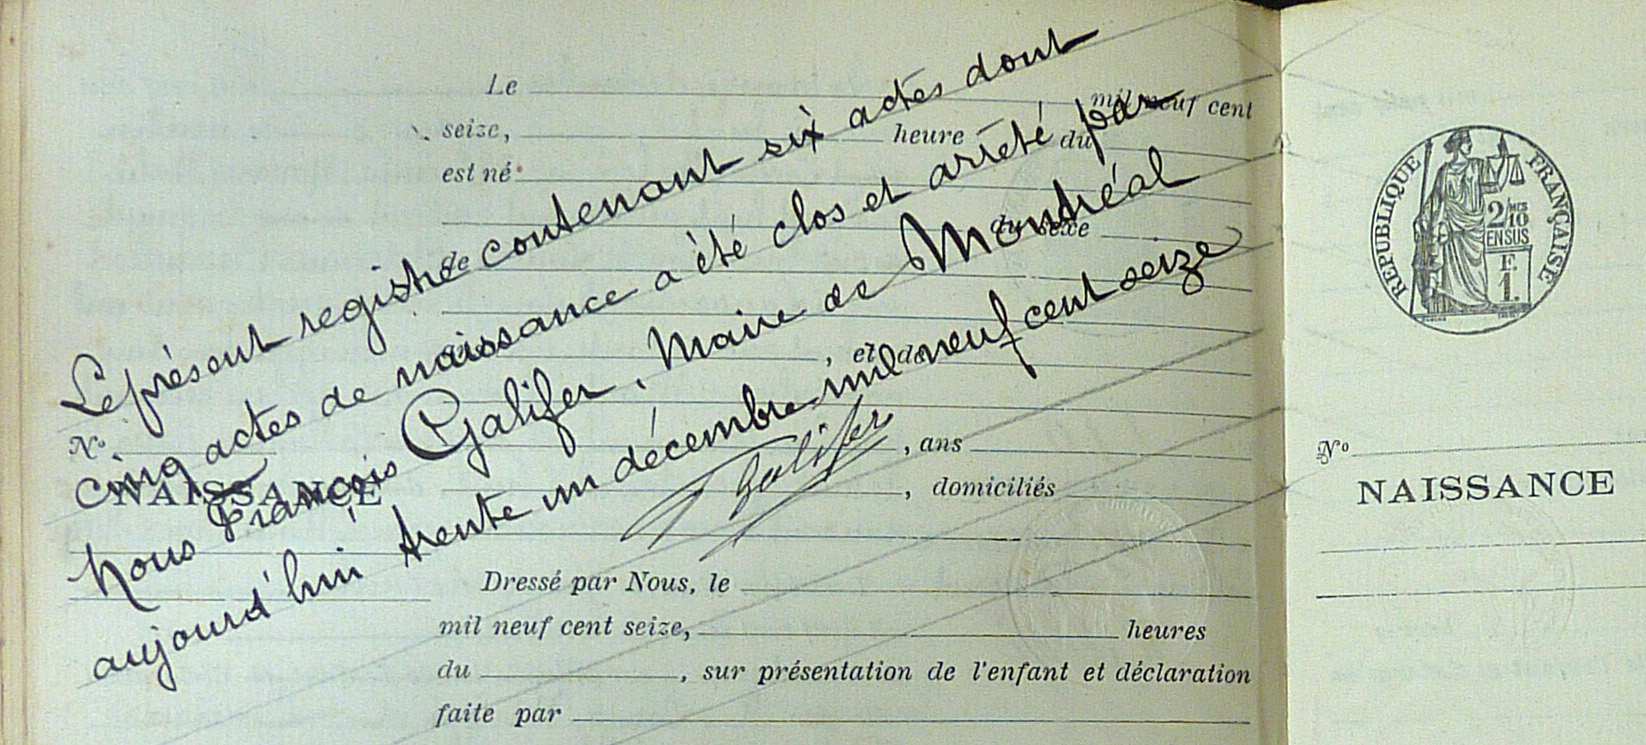 Le présent registre contenant six actes dont
cinq actes de naissance a été clos et arrêté par
Nous François Galifer, Maire de Montréal
aujourd'hui trente un décembre mil neuf cent seize
Galifer
Le mil neuf cent
seize, heure du
est né
du sexe
de
, et de
, ans
, domiciliés
N°
NAISSANCE
Dressé par Nous, le
mil neuf cent seize, heures
du , sur présentation de l'enfant et déclaration
faite par
RÉPUBLIQUE FRANÇAISE
2/10
EN SUS
F.
1.
N°
NAISSANCE